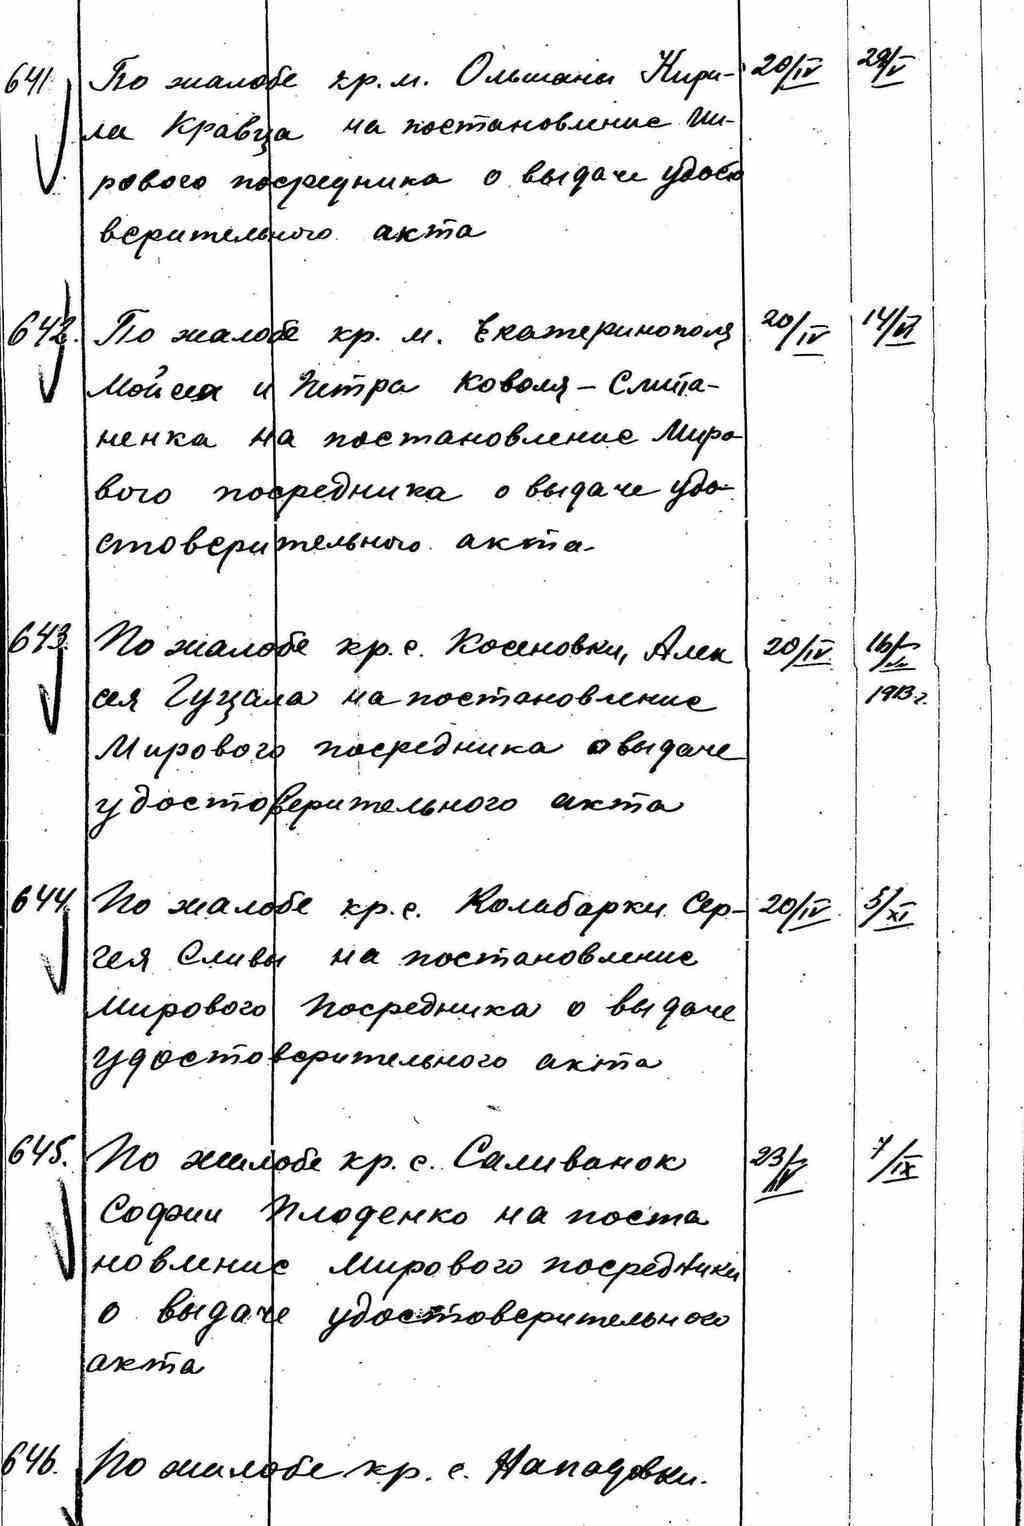 641 По жалобе кр. м. Ольшаны Кири- 20/IV 29/V
ла Кравца на постановление Ми-
рового посредника о выдаче удосто
верительного акта
642. По жалобе кр. м. Екатеринополя 20/IV 14/VI
Мойсея и Петра Коваля-Слипа-
ненка на постановление Миро-
вого посредника о выдаче удо-
стоверительного акта.
643. По жалобе кр. с. Косеновки, Алек 20/IV 16/
сея Гуцала на постановление 1913 г.
Мирового посредника о выдаче
удостоверительного акта
644. По жалобе кр. с. Колабарки Сер- 20/IV 5/XI
гея Сливы на постановление
Мирового Посредника о выдаче
удостоверительного акта
645. По жалобе кр. с. Саливанок 23/IV 7/IX
Софии Плоденко на поста
новление Мирового посредника
о выдаче удостоверительного
акта
646. По жалобе кр. с. Нападовки.